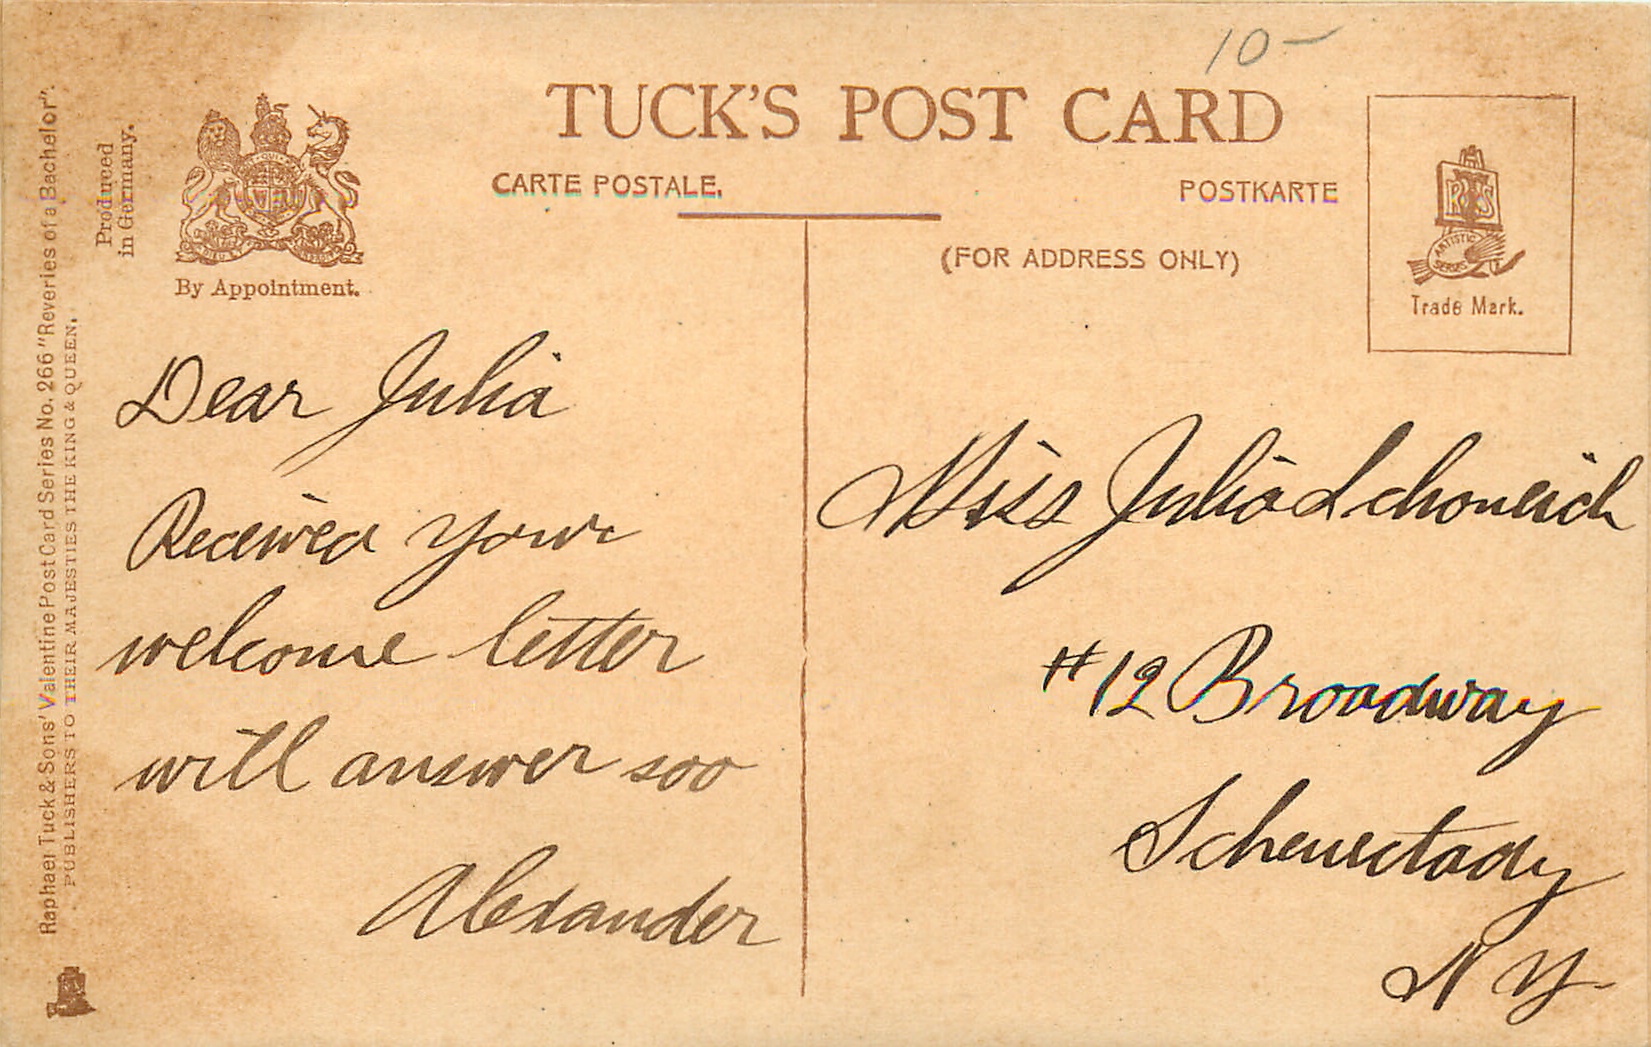 10-
TUCK'S POST CARD
CARTE POSTALE.
POSTKARTE
(FOR ADDRESS ONLY)
Produced
in Germany.
By Appointment.
ARTISTIC
SERIES
Trade Mark.
Raphael Tuck & Sons' Valentine Post Card Series No. 266 "Reveries of a Bachelor".
PUBLISHERS TO THEIR MAJESTIES THE KING & QUEEN.
Dear Julia
Received your
welcome letter
will answer soo
Alexander
Miss Julia Schoneich
#12 Broadway
Schenectady
N Y.